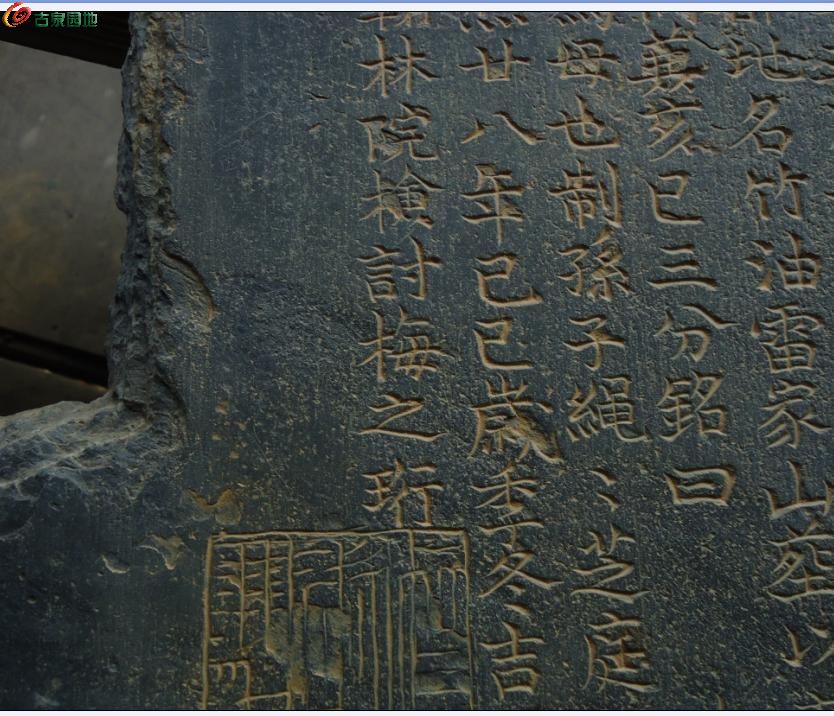 古泉园地
地名竹油雷家山塋以
癸亥巳三分銘曰
母也制孫子繩〻芝庭
廿八年己巳歲季冬、吉
翰林院檢討梅之珩